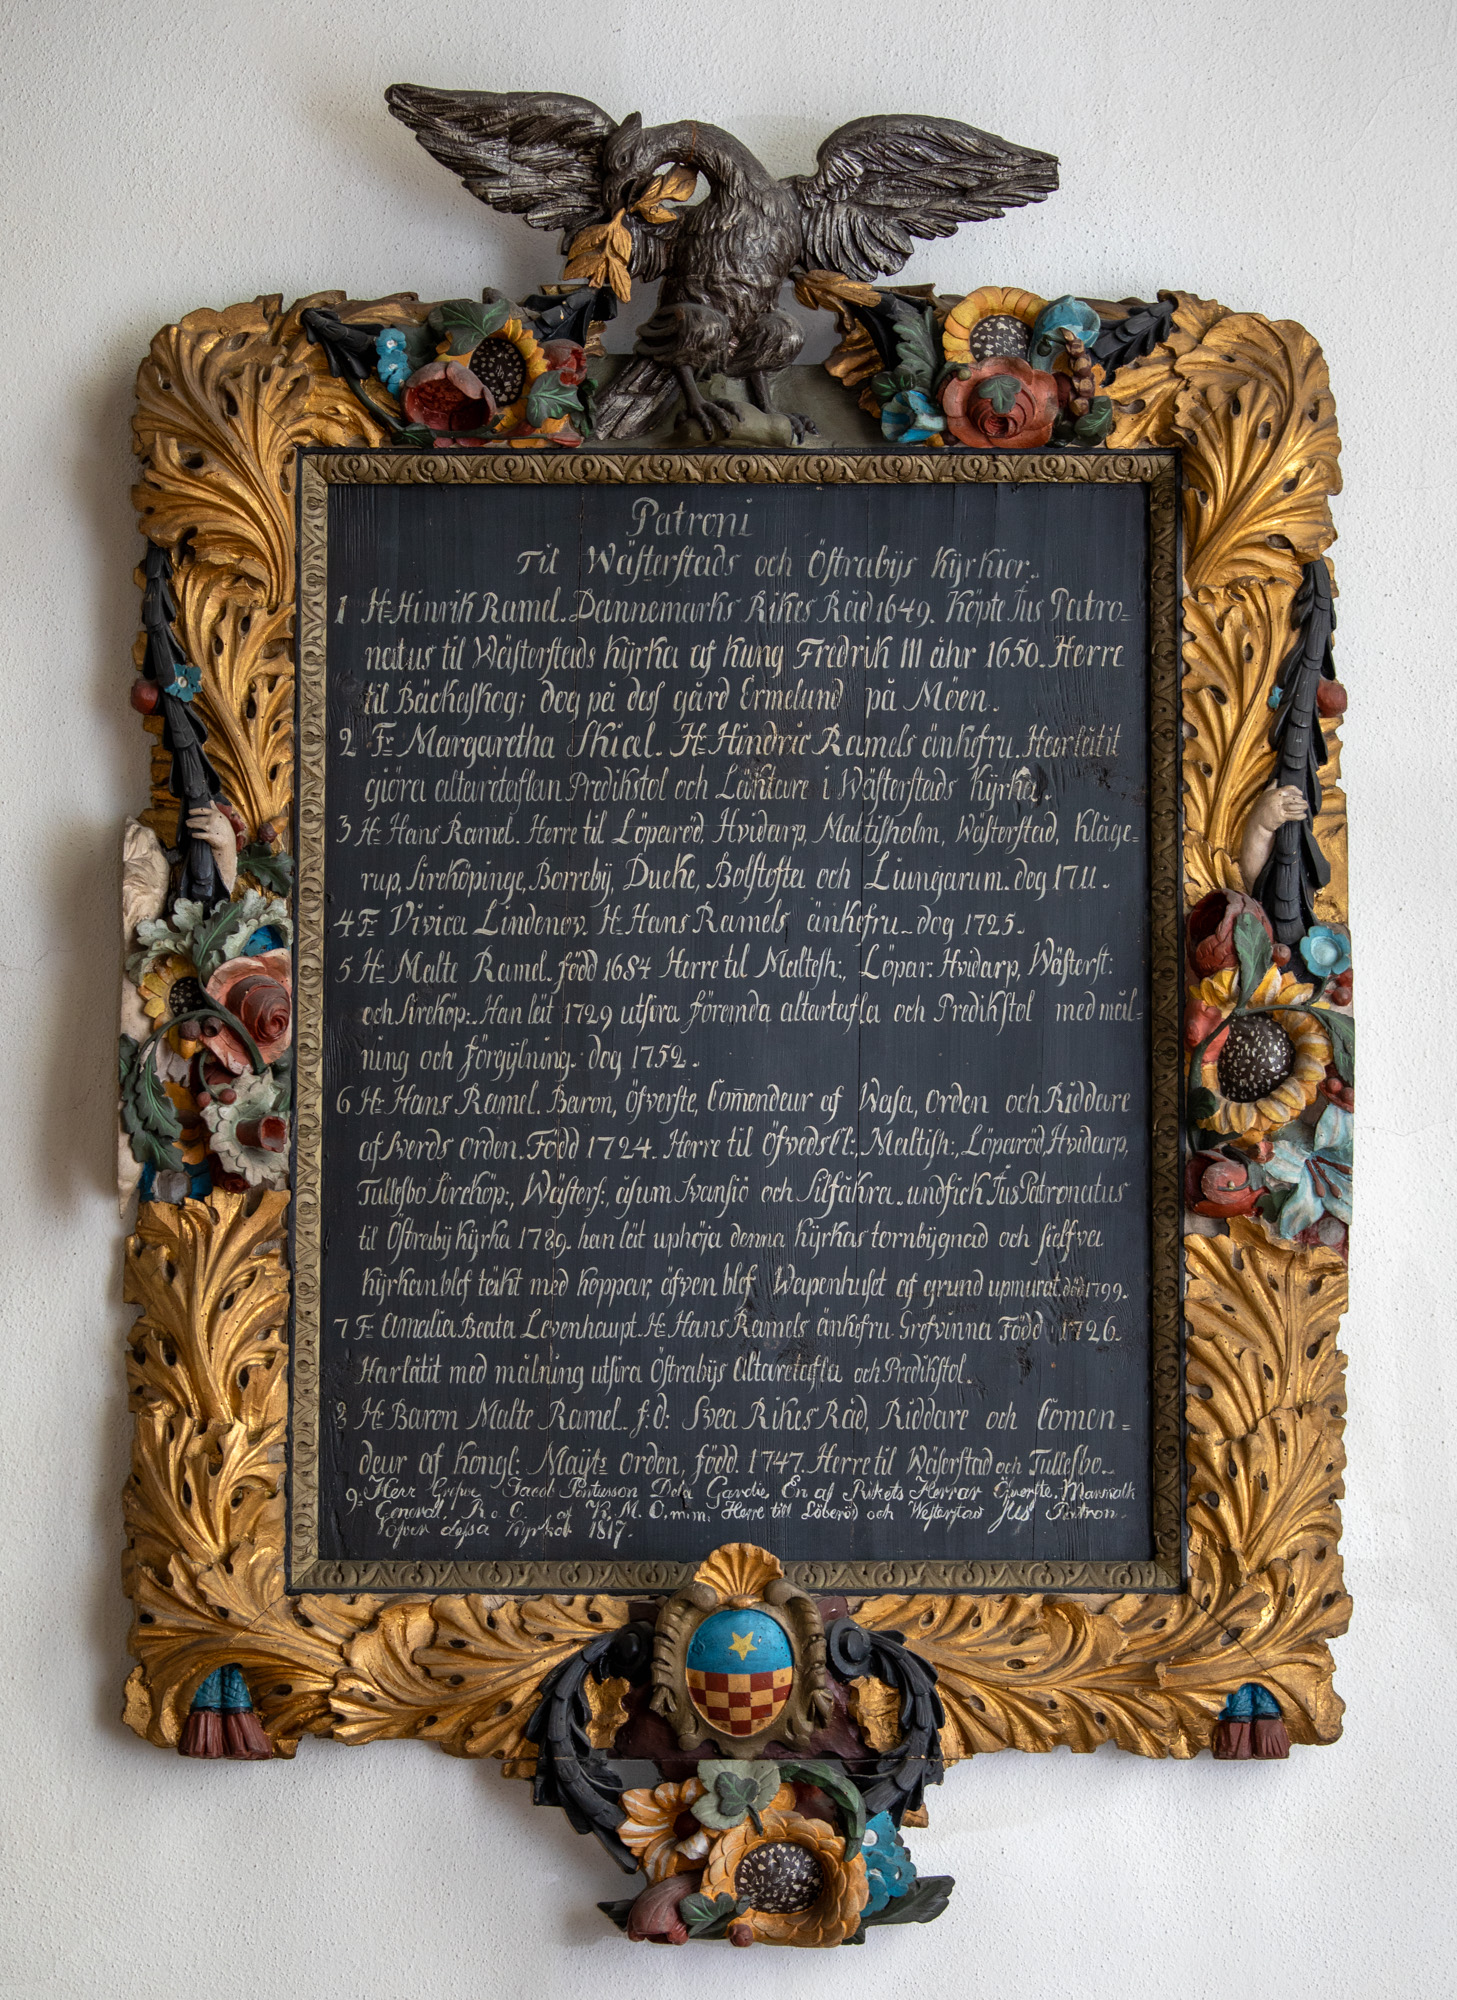 Patroni
Til Wästerstads och Östrabÿs Kÿrkior.
1 H: Hinrik Ramel. Dannemarks Rikes Råd 1649. Köpte Jus Patro=
natus til Wästerstads Kÿrka af Kung Fredrik III åhr 1650. Herre
til Bäckaskog; dog på dess gård Ermelund på Möen.
2 F: Margaretha Skial. H: Hindric Ramels änkefru. Har låtit
giöra altaretaflan Predikstol och Läktare i Wästerstads Kÿrka.
3 H: Hans Ramel. Herre til Löparöd, Hvidarp, Maltisholm, Wästerstad, Klåge=
rup, Sireköpinge, Borrebÿ, Dueke, Bolstofta och Liungarum. dog 1711.
4 F: Vivica Lindenov. H: Hans Ramels änkefru. dog 1725.
5 H: Malte Ramel. född 1684 Herre til Maltesh:, Löpar: Hvidarp, Wästerst:
och Sireköp:. Han leit 1729 utsira föremda altartafla och Predikstol med mål=
ning och förgÿlning. dog 1752.
6 H: Hans Ramel. Baron, Öfverste, Com̄endeur af Wasa, Orden och Riddare
af Sverds Orden. Född 1724. Herre til Öfvedscl:, Maltish:, Löparöd, Hvidarp,
Tullesbo Sireköp:, Wästers:, åsum Svansiö och Silfåkra. undfick Jus Patronatus
til Östrabÿ Kÿrka 1789. han leit uphöja denna Kÿrkas tornbÿgnad och sielfva
Kÿrkan blef täkt med koppar, äfven blef Wapenhuset af grund upmurat. död 1799.
7 F: Amalia Beata Levenhaupt. H: Hans Ramels änkefru. Grefvinna Född 1726.
Har låtit med målning utsira Östrabÿs Altaretafla och Predikstol.
8 H: Baron Malte Ramel. f: d: Svea Rikes Råd, Riddare och Comen=
deur af Kongl: Maÿts Orden, född. 1747. Herre til Wäserstad och Tullesbo.
9: Herr Grefve Jacob Pontusson De la Gardie En af Rikets Herrar Öfverste, Marskalk
General, R. o. C. af K. M. O. m.m. Herre till Löberöd och Westerstad Jus Patron.
öfver dessa Kyrkor 1817.